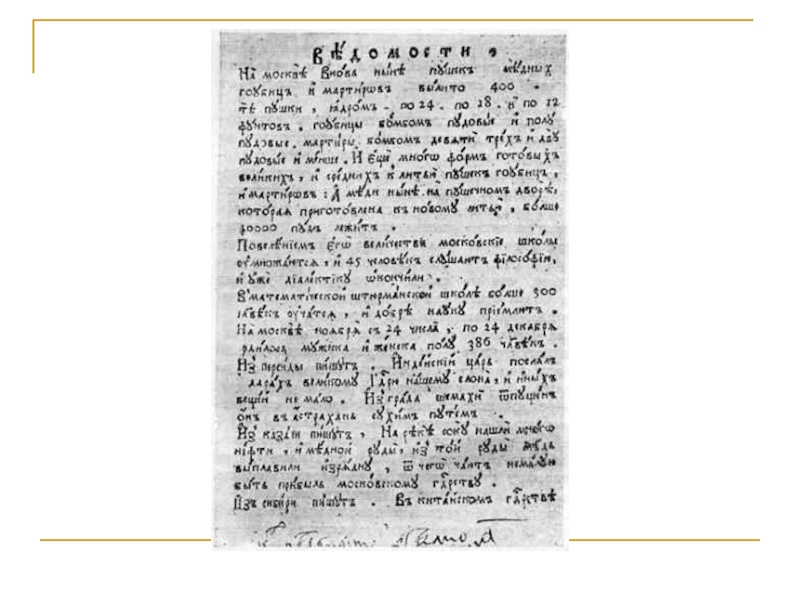 ВѢДОМОСТИ
На москвѣ вновь нынѣ пушекъ мѣдныхъ
гоубицъ и мартировъ вылито 400.
тѣ пушки, ядромъ - по 24. по 18. и по 12
фунтовъ. гоубицы бомбомъ пудовые и полу
пудовые. мартиры бомбомъ девяти трехъ и двѹ
пудовые и менше. И еще много формъ готовыхъ
великихъ, и среднихъ к литью пушекъ гоубицъ,
и мартировъ: А мѣди нынѣ на пушечномъ дворѣ,
которая приготовлена къ новому литью, болше
40000 пудъ лежитъ.
Повелѣніемъ егѡ величества московскіе школы
ѹмножаются, и 45 человѣкъ слушаютъ філософію,
и уже діалектіку ѡкончили.
В математіческой штюрманской школѣ болше 300
члвѣкъ ѹчатся, и добрѣ науку пріемлютъ.
На москвѣ ноября съ 24 числа, по 24 декабря
родилось мужеска и женска полу 386 члвѣкъ.
Из персиды пишутъ. Индѣйскій царь послалъ
въ дарахъ великому Гдрю нашему слона, и иныхъ
вещей не мало. Из града шемахи ѿпущенъ
онъ въ астрахань сухимъ путемъ.
Из казани пишутъ, На рѣкѣ соку нашли много
нефти, и мѣдной руды, из той руды мѣдь
выплавили изрядну, ѿ чегѡ чаютъ немалую
быть прибыль московскому гдрству.
Изъ сибири пишутъ. Въ китайскомъ гдрствѣ